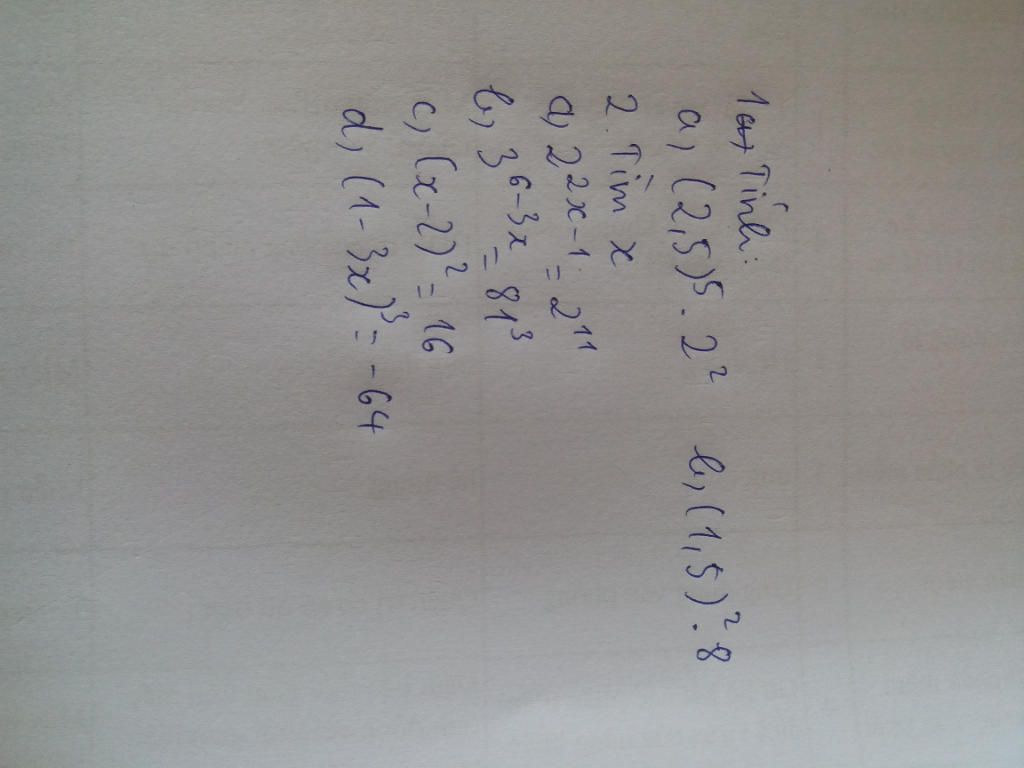 1 Tính:
a, (2,5)⁵ . 2² b, (1,5)² . 8
2. Tìm x
a, 2²ˣ⁻¹ = 2¹¹
b, 3⁶⁻³ˣ = 81³
c, (x-2)² = 16
d, (1-3x)³ = -64